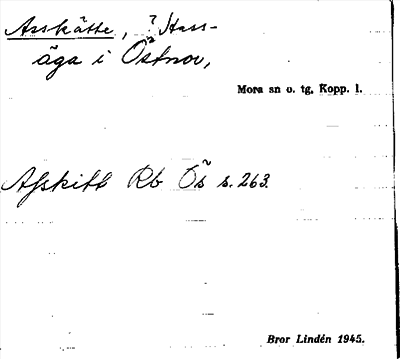 Asskätte, ? Hass-
äga i Östnor,
Mora sn o. tg, Kopp. l.
Afskift Rb Ös s. 263.
Bror Lindén 1945.